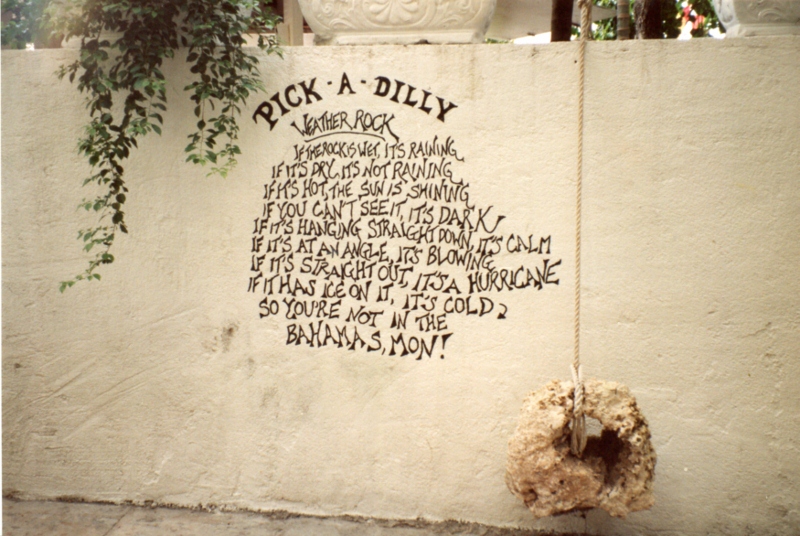 PICK-A-DILLY
WEATHER ROCK
IF THE ROCK IS WET, IT'S RAINING
IF IT'S DRY, IT'S NOT RAINING
IF IT'S HOT, THE SUN IS SHINING
IF YOU CAN'T SEE IT, IT'S DARK
IF IT'S HANGING STRAIGHT DOWN, IT'S CALM
IF IT'S AT AN ANGLE, IT'S BLOWING
IF IT'S STRAIGHT OUT, IT'S A HURRICANE
IF IT HAS ICE ON IT, IT'S COLD,
SO YOU'RE NOT IN THE
BAHAMAS, MON!